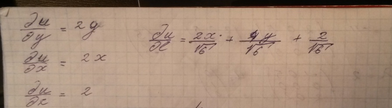 ∂u/∂y = 2y
∂u/∂x = 2x
∂u/∂z = 2
∂u/∂l = 2x/√6 + 4y/√6 + 2/√6